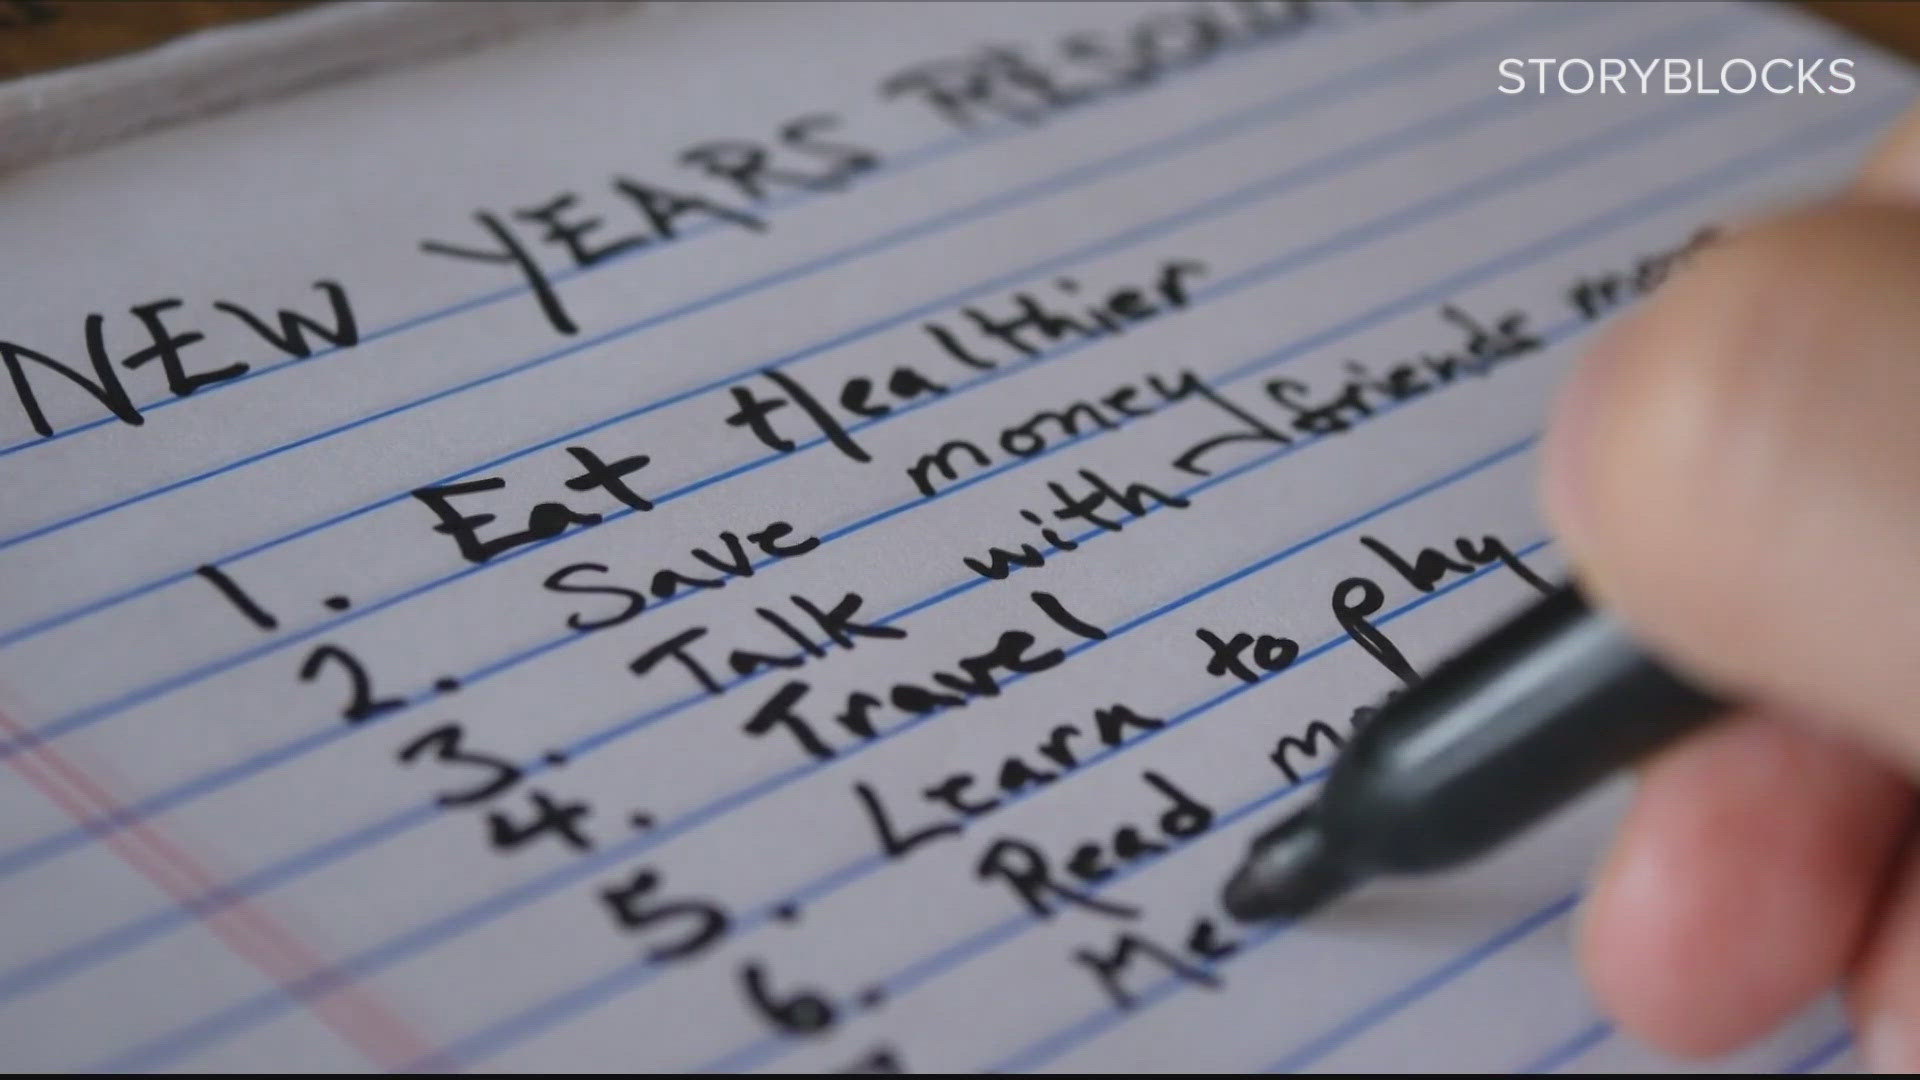 STORYBLOCKS
NEW YEARS
1. Eat Healthier
2. Save money
3. Talk with friends
4. Travel
5. Learn to play
6. Read